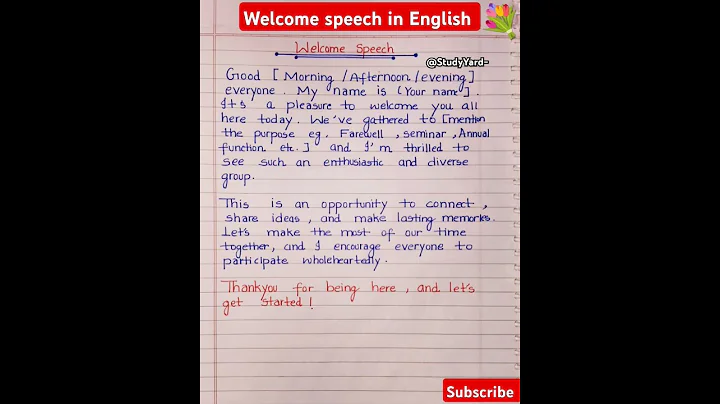 Welcome speech in English
Welcome Speech
@StudyYard-
Good [ Morning /Afternoon /evening]
everyone. My name is (Your name].
It's a pleasure to welcome you all
here today. We've gathered to [mention
the purpose eg. Farewell, seminar, Annual
function etc.] and I'm thrilled to
see such an enthusiastic and diverse
group.
This is an opportunity to connect,
share ideas, and make lasting memories.
Let's make the most of our time
together, and I encourage everyone to
participate wholeheartedly.
Thankyou for being here, and let's
get started!
Subscribe